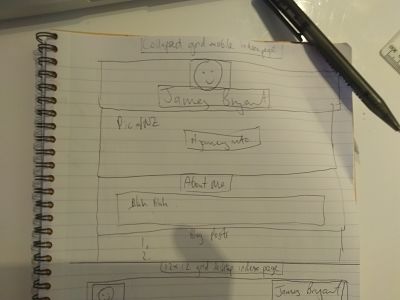 Collapsed grid mobile index page
James Bryant
Pic of NZ
About Me
Blah Blah
Blog Posts
1.
2.
12x12 grid desktop index page
James Bryant